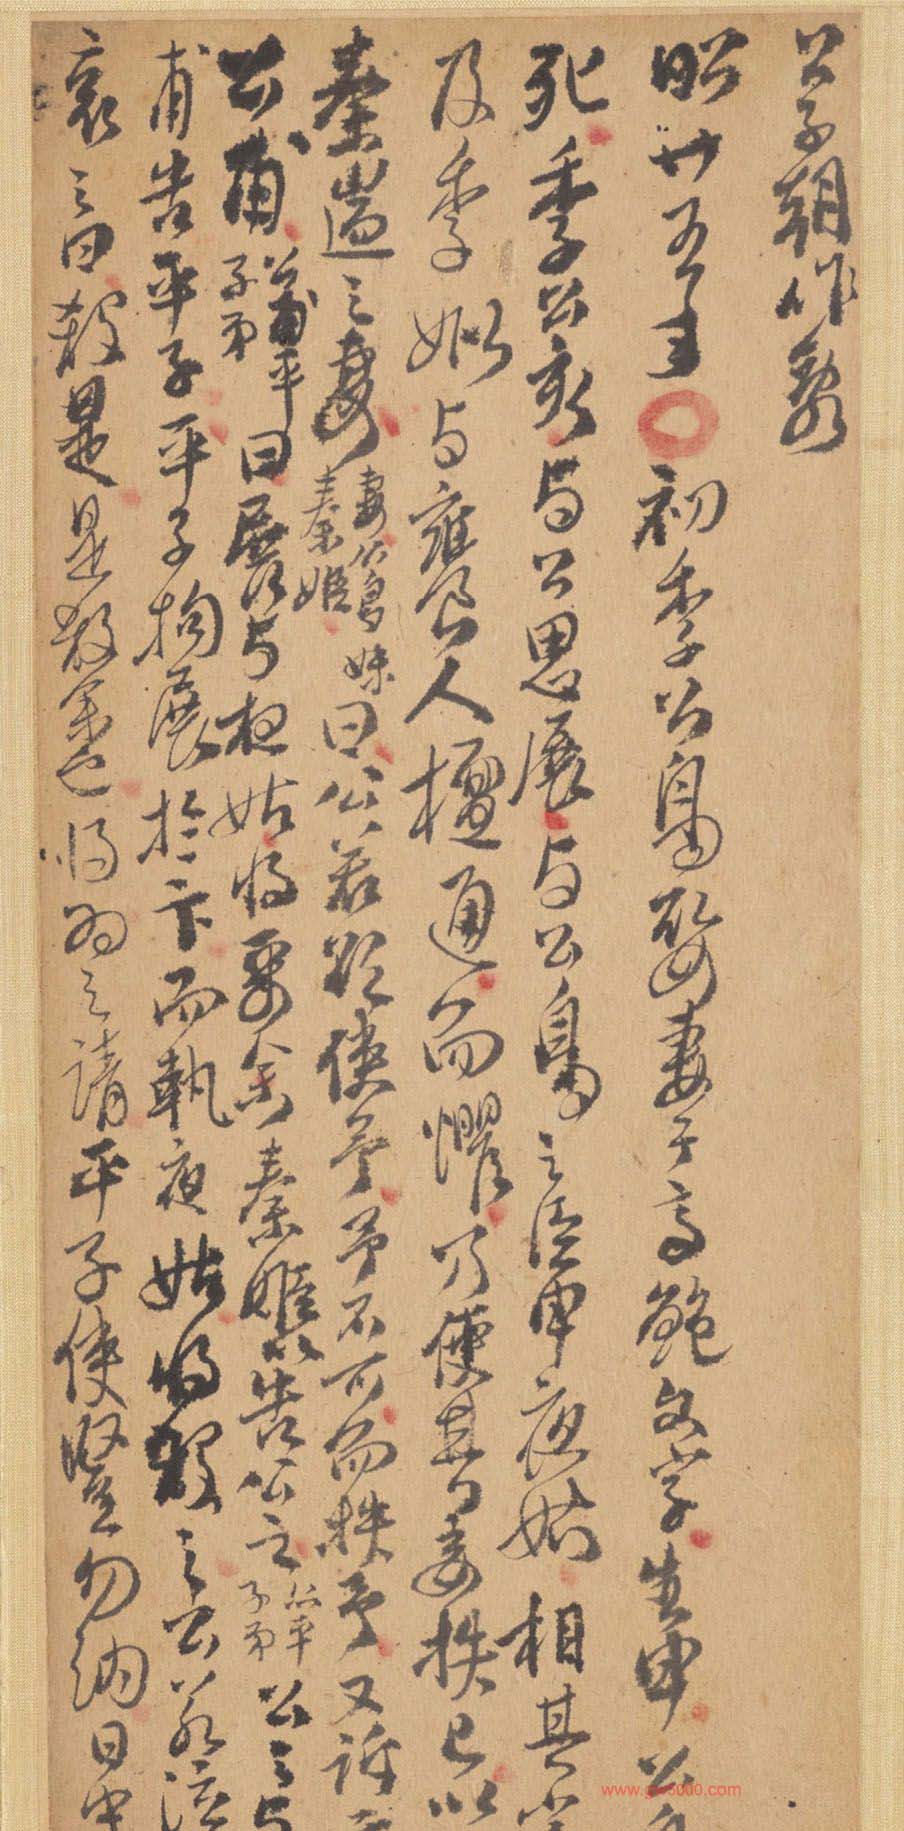 公子朝作亂
昭廿五年初季公鳥娶妻于齊鮑文子生甲公
死季公亥与公思展与公鳥之臣申夜姑相其
及季姒与饔人檀通而懼乃使其妾抶己以
秦遄之妻妻公鳥妹秦姬曰公若欲使予予不可而抶予又訴
公甫公甫平子弟曰展与夜姑将要余秦姬以告公之公平子弟公之与
甫告平子平子拘展於卞而執夜姑将殺之公若泣
哀之曰殺是是殺余也将為之請平子使豎勿納日中